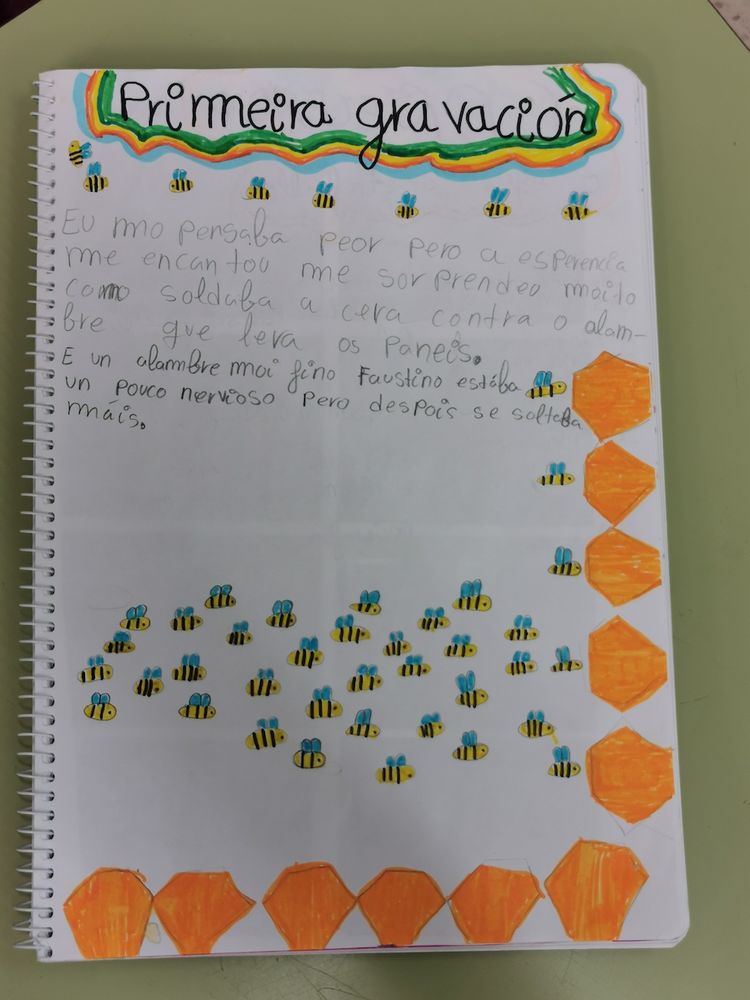 Primeira gravación
Eu mo pensaba peor pero a esperencia
me encantou me sorprendeo moito
como soldaba a cera contra o alam-
bre que leva os paneis.
E un alambre moi fino Faustino estába
un pouco nervioso pero despois se soltaba
máis.